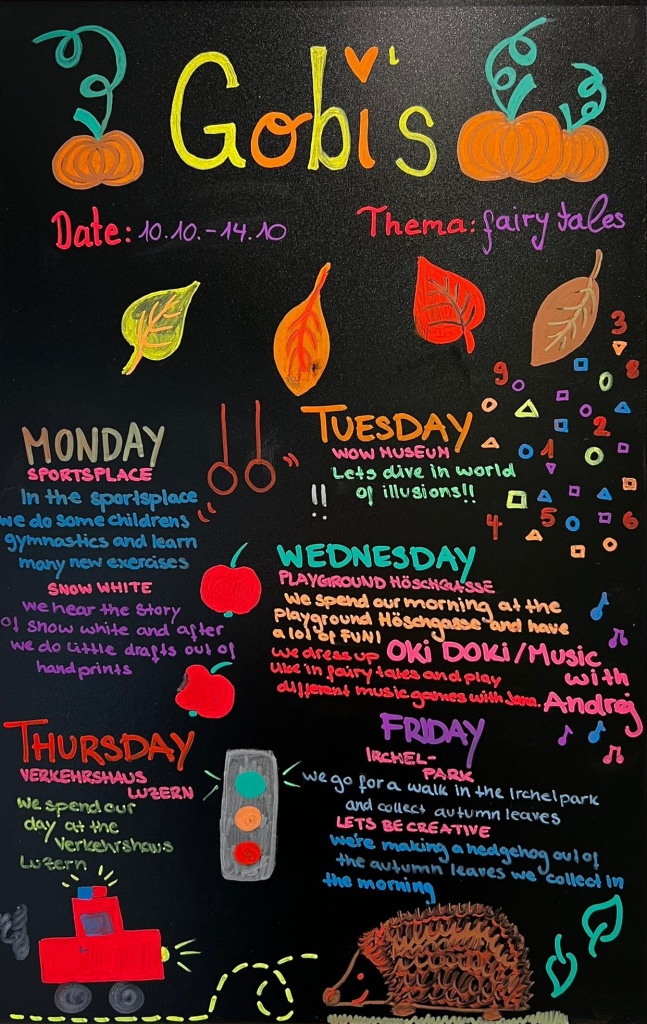 Gobi's
Date: 10.10.-14.10
Thema: fairy tales
MONDAY
SPORTSPLACE
In the sportsplace
we do some childrens
gymnastics and learn
many new exercises
SNOW WHITE
we hear the story
of snow white and after
we do little drafts out of
handprints
TUESDAY
WOW MUSEUM
Lets dive in world
of illusions!!
!!
3
8
9
2
1
4
5
6
WEDNESDAY
PLAYGROUND HÖSCHGASSE
we spend our morning at the
Playground Höschgasse and have
a lot of FUN!
we dress up
like in fairy tales and play
different music games with Jana.
OKI DOKI/Music
with
Andrej
THURSDAY
VERKEHRSHAUS
LUZERN
we spend our
day at the
Verkehrshaus
Luzern
FRIDAY
IRCHEL-
PARK
we go for a walk in the Irchelpark
and collect autumn leaves
LETS BE CREATIVE
we're making a hedgehog out of
the autumn leaves we collect in
the morning